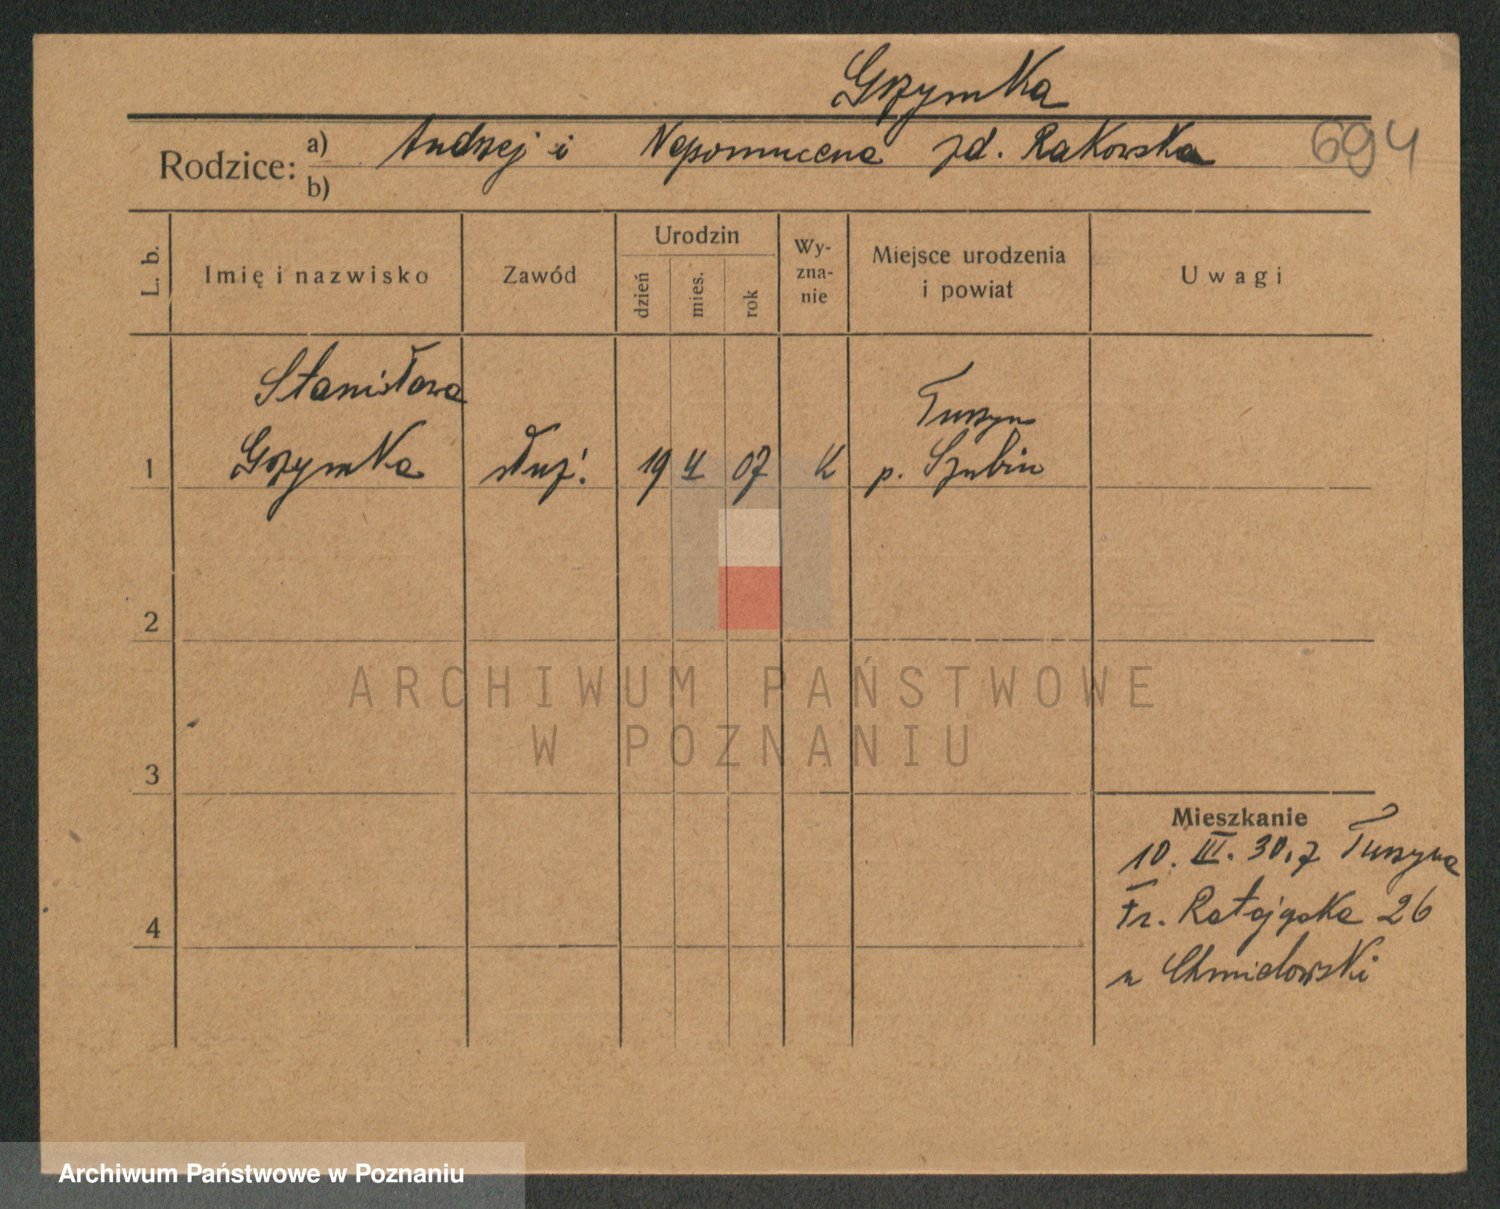 Grzymka
Rodzice: a) Andrzej i Nepomucena zd. Rakowska 694
b)
L. b. Imię i nazwisko Zawód Urodzin dzień mies. rok Wy-zna-nie Miejsce urodzenia i powiat Uwagi
Stanisława Turzyn
1 Grzymka służ. 19 4 07 K p. Szubin
2
ARCHIWUM PAŃSTWOWE
W POZNANIU
3
Mieszkanie
10. III. 30. z Turzyna
Fr. Ratajczaka 26
4
u Chmielowski
Archiwum Państwowe w Poznaniu